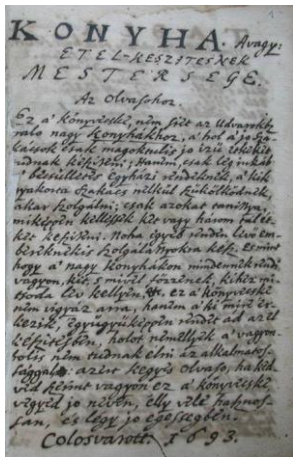 KONYHA. Avagy:
ETEL-KESZITESNEK
MESTERSEGE.
Az Olvasohoz.
Ez a' könyvetske, nem siet az Udvarokhoz
való nagy Konyhakhoz, a' hol a' jo Sza-
katsok csak magoktulis jo izü etkeket
tudnak késziteni; hanem, csak leg inkab
a' betsülletes egyházi rendeknek, a' kik
gyakorta Szakács nélkül szükölködnek,
akar szolgálni; csak azokat tanittya,
miképpen kellessék két vagy három tál ét-
ket késziteni. Noha egyéb renden levö em-
bereknekis szolgálattyokra kész. Es mint
hogy a' nagy Konyhákon mindennek rendi
vagyon, kit, s mivel fözzenek, kihez mi-
tsoda lév kellyen, etc. ez a' könyvetske
nem vigyáz arra, hanem a' ki mire ér-
kezik, együgyüképpen rendet ad az el
készitésben, holot némellyek a' vagyon-
bolis nem tudnak élni az alkalmatos-
sággal. azért kegyes olvaso, ha ked-
ved szerint vagyon ez a' könyvetske
vegyed jo néven, élly vélé hasznos-
san, és légy jo egésségben.
Colosvarott: 1693.